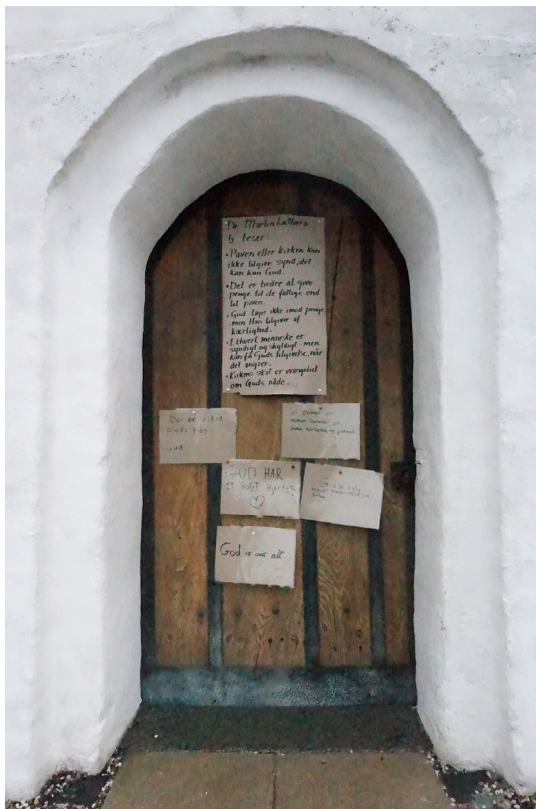 Dr. Martin Luthers
5 teser:
• Paven eller Kirken kan
ikke tilgive synd, det
kan kun Gud.
• Det er bedre at give
penge til de fattige end
til paven.
• Gud tager ikke imod penge,
men Han tilgiver af
kærlighed.
• Ethvert menneske er
syndigt og skyldigt - men
kan få Guds tilgivelse, når
det angrer.
• Kirkens skat er evangeliet
om Guds nåde.
Der er altid
plads hos
Gud
GUD HAR
et godt hjerte
God er over alt